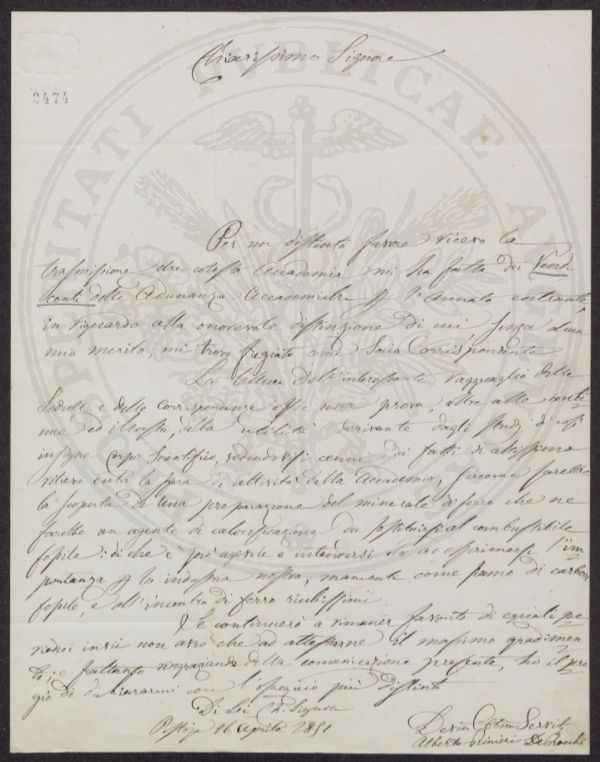 Chiarissimo Signore
2474
PROSPERITATI PUBLICAE AUG
Per un distinto favore ricevo la
trasmissione che cotesta Accademia mi ha fatta dei Rendi
conti delle Adunanze Accademiche p l'annata entrante,
in riguardo alla onorevole distinzione di cui, senza alcun
mio merito, mi trovo fregiato come Socio Corrispondente.
La lettura dell'interessante ragguaglio delle
Sedute e delle corrispondenze offre una prova, oltre alle conti
nue ed illustri, della utilità derivante dagli studj di
insigne Corpo Scientifico, vedendovisi cenni di fatti di altissimo
rilievo entro la sfera di attività della Accademia, siccome sarebbe
la scoperta di una preparazione del minerale di ferro che ne
farebbe un agente di calorificazione da sostituirsi al combustibile
fossile: di che è più agevole intendersi che ad esprimersi l'im
portanza p la industria nostra, mancante come siamo di carbon
fossile, e all'incontro di ferro ricchissimi.
Se continuerò a rimaner favorito di eguali pe
riodici invii non avrò che ad attestarne il massimo gradimen
to; e frattanto ringraziando della comunicazione presente, ho il pre
gio di dichiararmi con l'ossequio più distinto
Di Lei Ch. Signore
16 Aprile 1851
Devm Servit
Alberto Rinieri De Rocchi